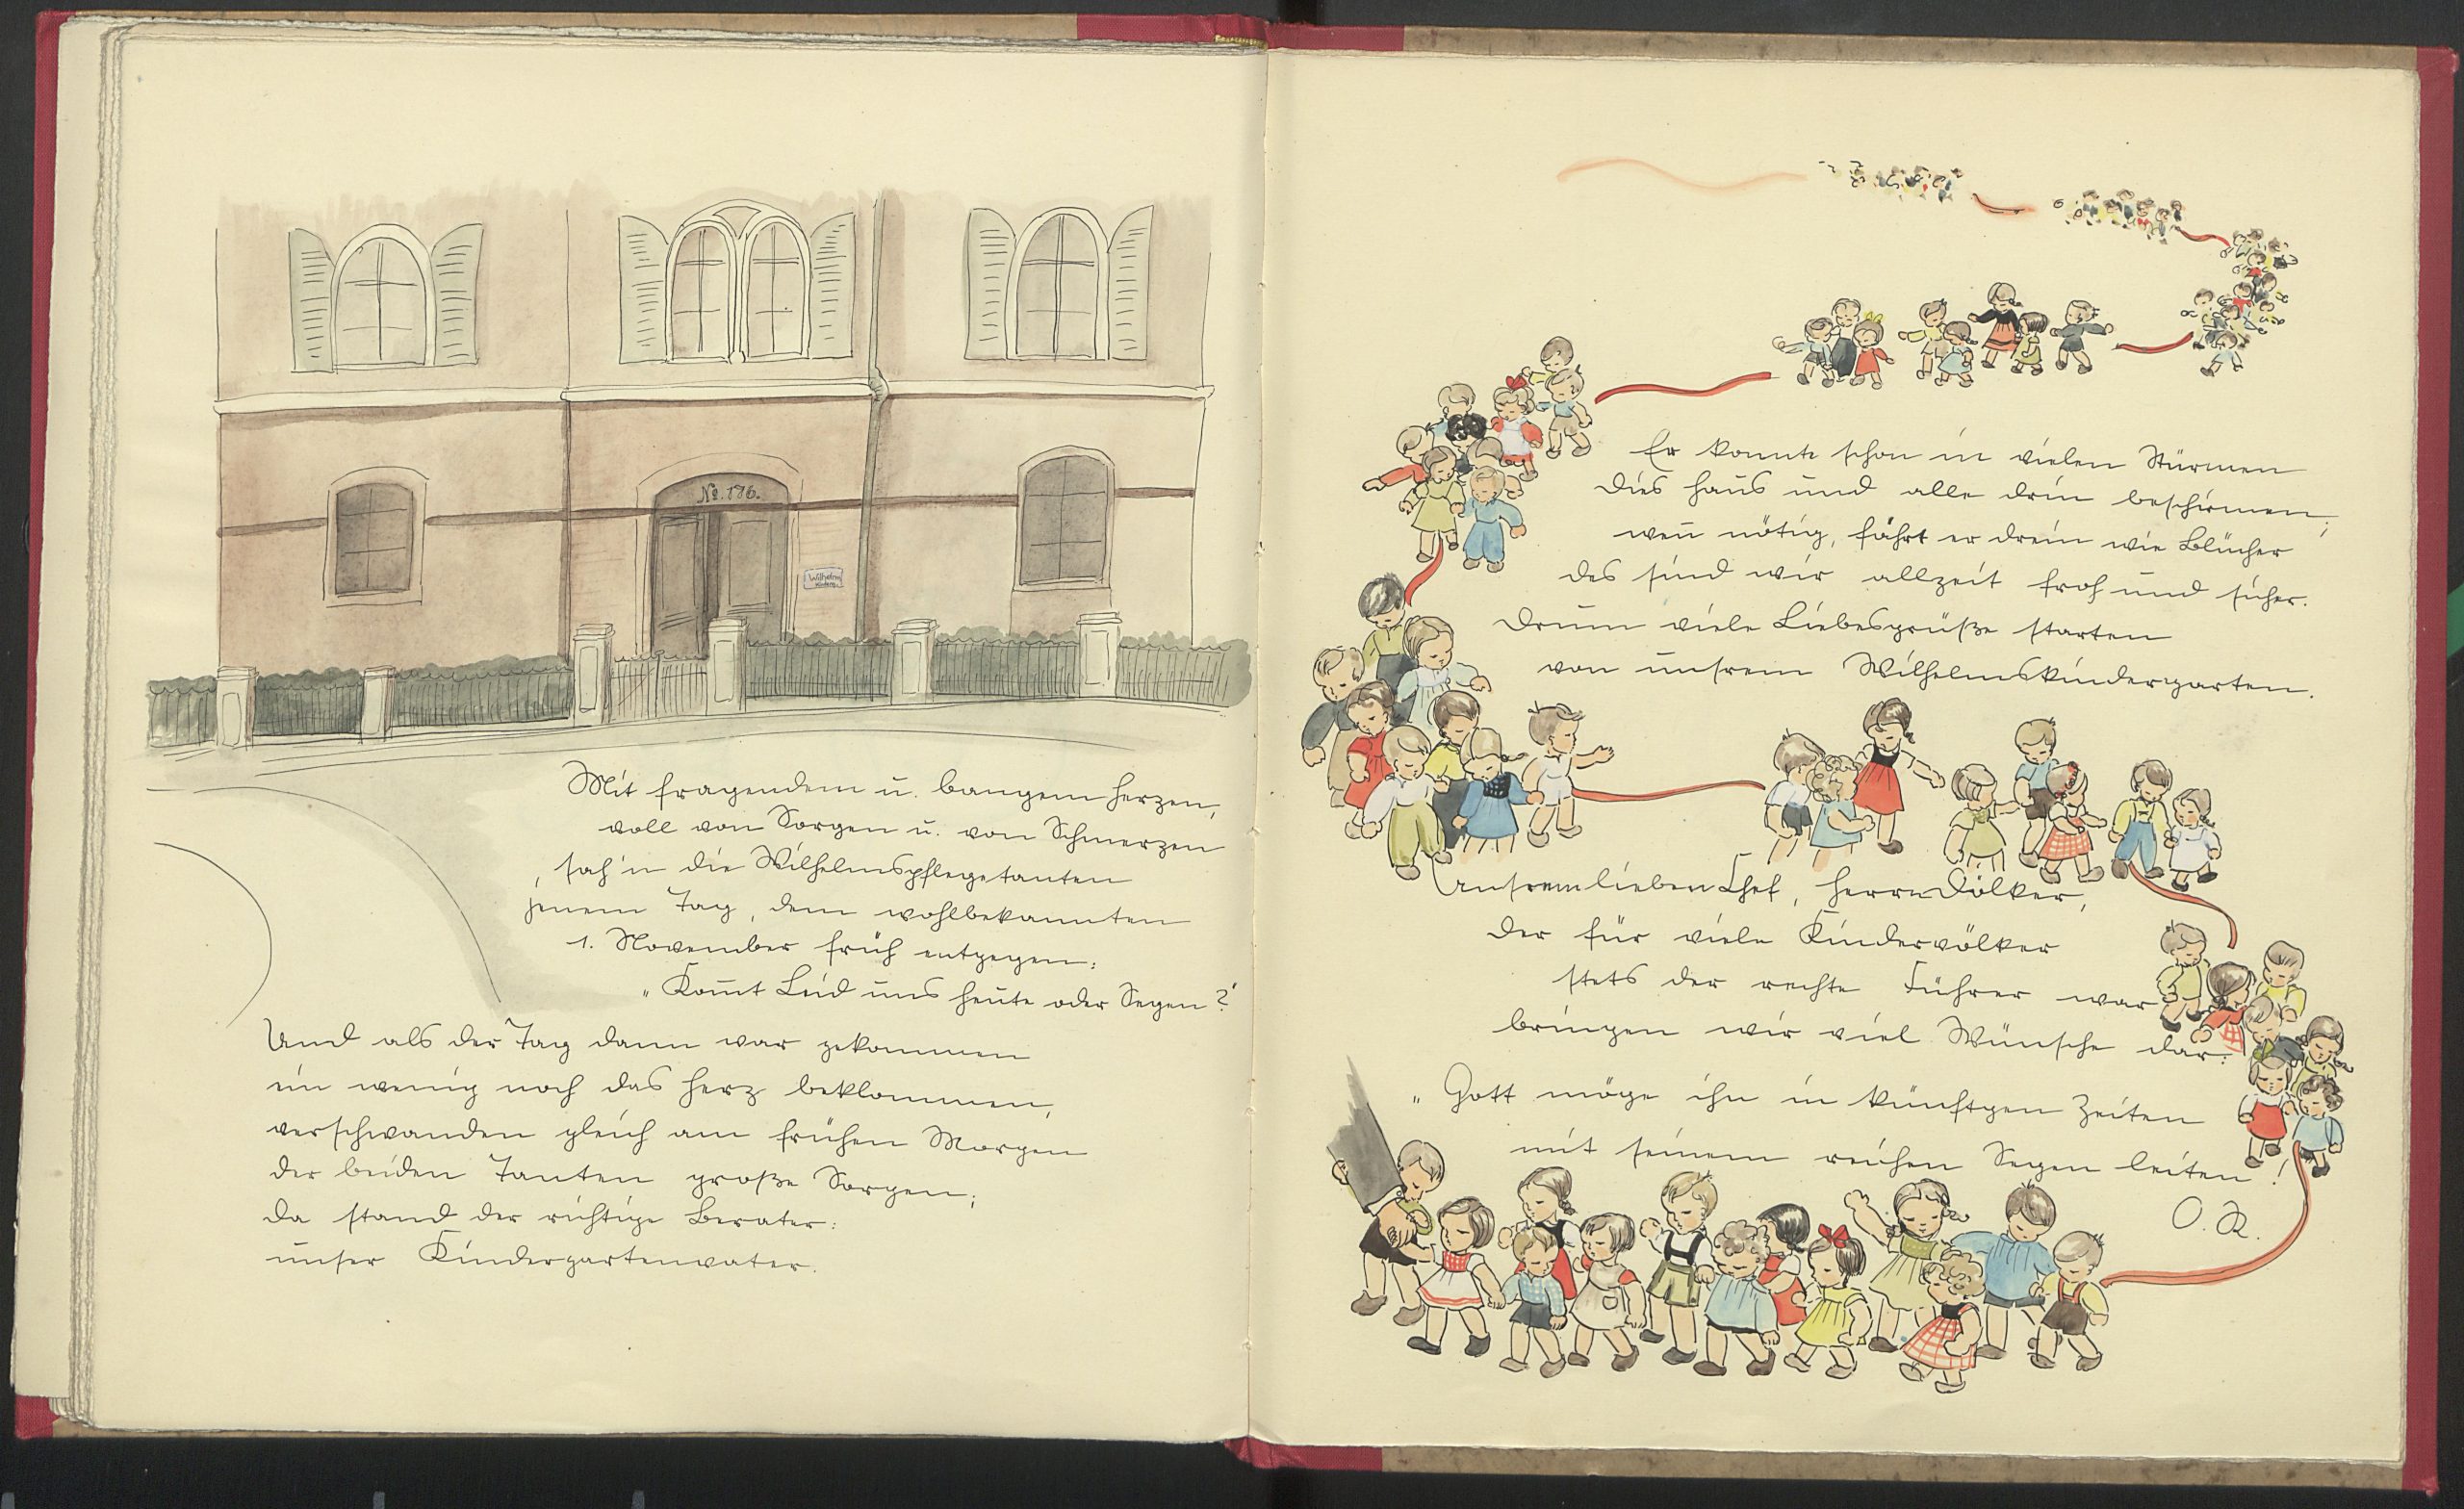 No. 176.
Wilhelms
Mit fragendem u. bangem Herzen,
voll von Sorgen u. von Schmerzen
sah'n die Wilhelmspflegetanten
jenem Tag, dem wohlbekannten
1. November früh entgegen:
„Kom̄t Leid uns heute oder Segen?"
Und als der Tag dann war gekommen
ein wenig noch das Herz beklommen,
verschwanden gleich am frühen Morgen
der beiden Tanten große Sorgen;
da stand der richtige Berater:
unser Kindergartenvater.
Er konnte schon in vielen Stürmen
dies Haus und alle drin beschirmen;
wen̄ nötig, fährt er drein wie Blücher
des sind wir allzeit froh und sicher.
Drum viele Liebesgrüße starten
von unsrem Wilhelmskindergarten.
Unsrem lieben Chef, Herrn Dölker,
der für viele Kindervölker
stets der rechte Führer war
bringen wir viel Wünsche dar:
„Gott möge ihn in künftgen Zeiten
mit seinem reichen Segen leiten!
O. K.